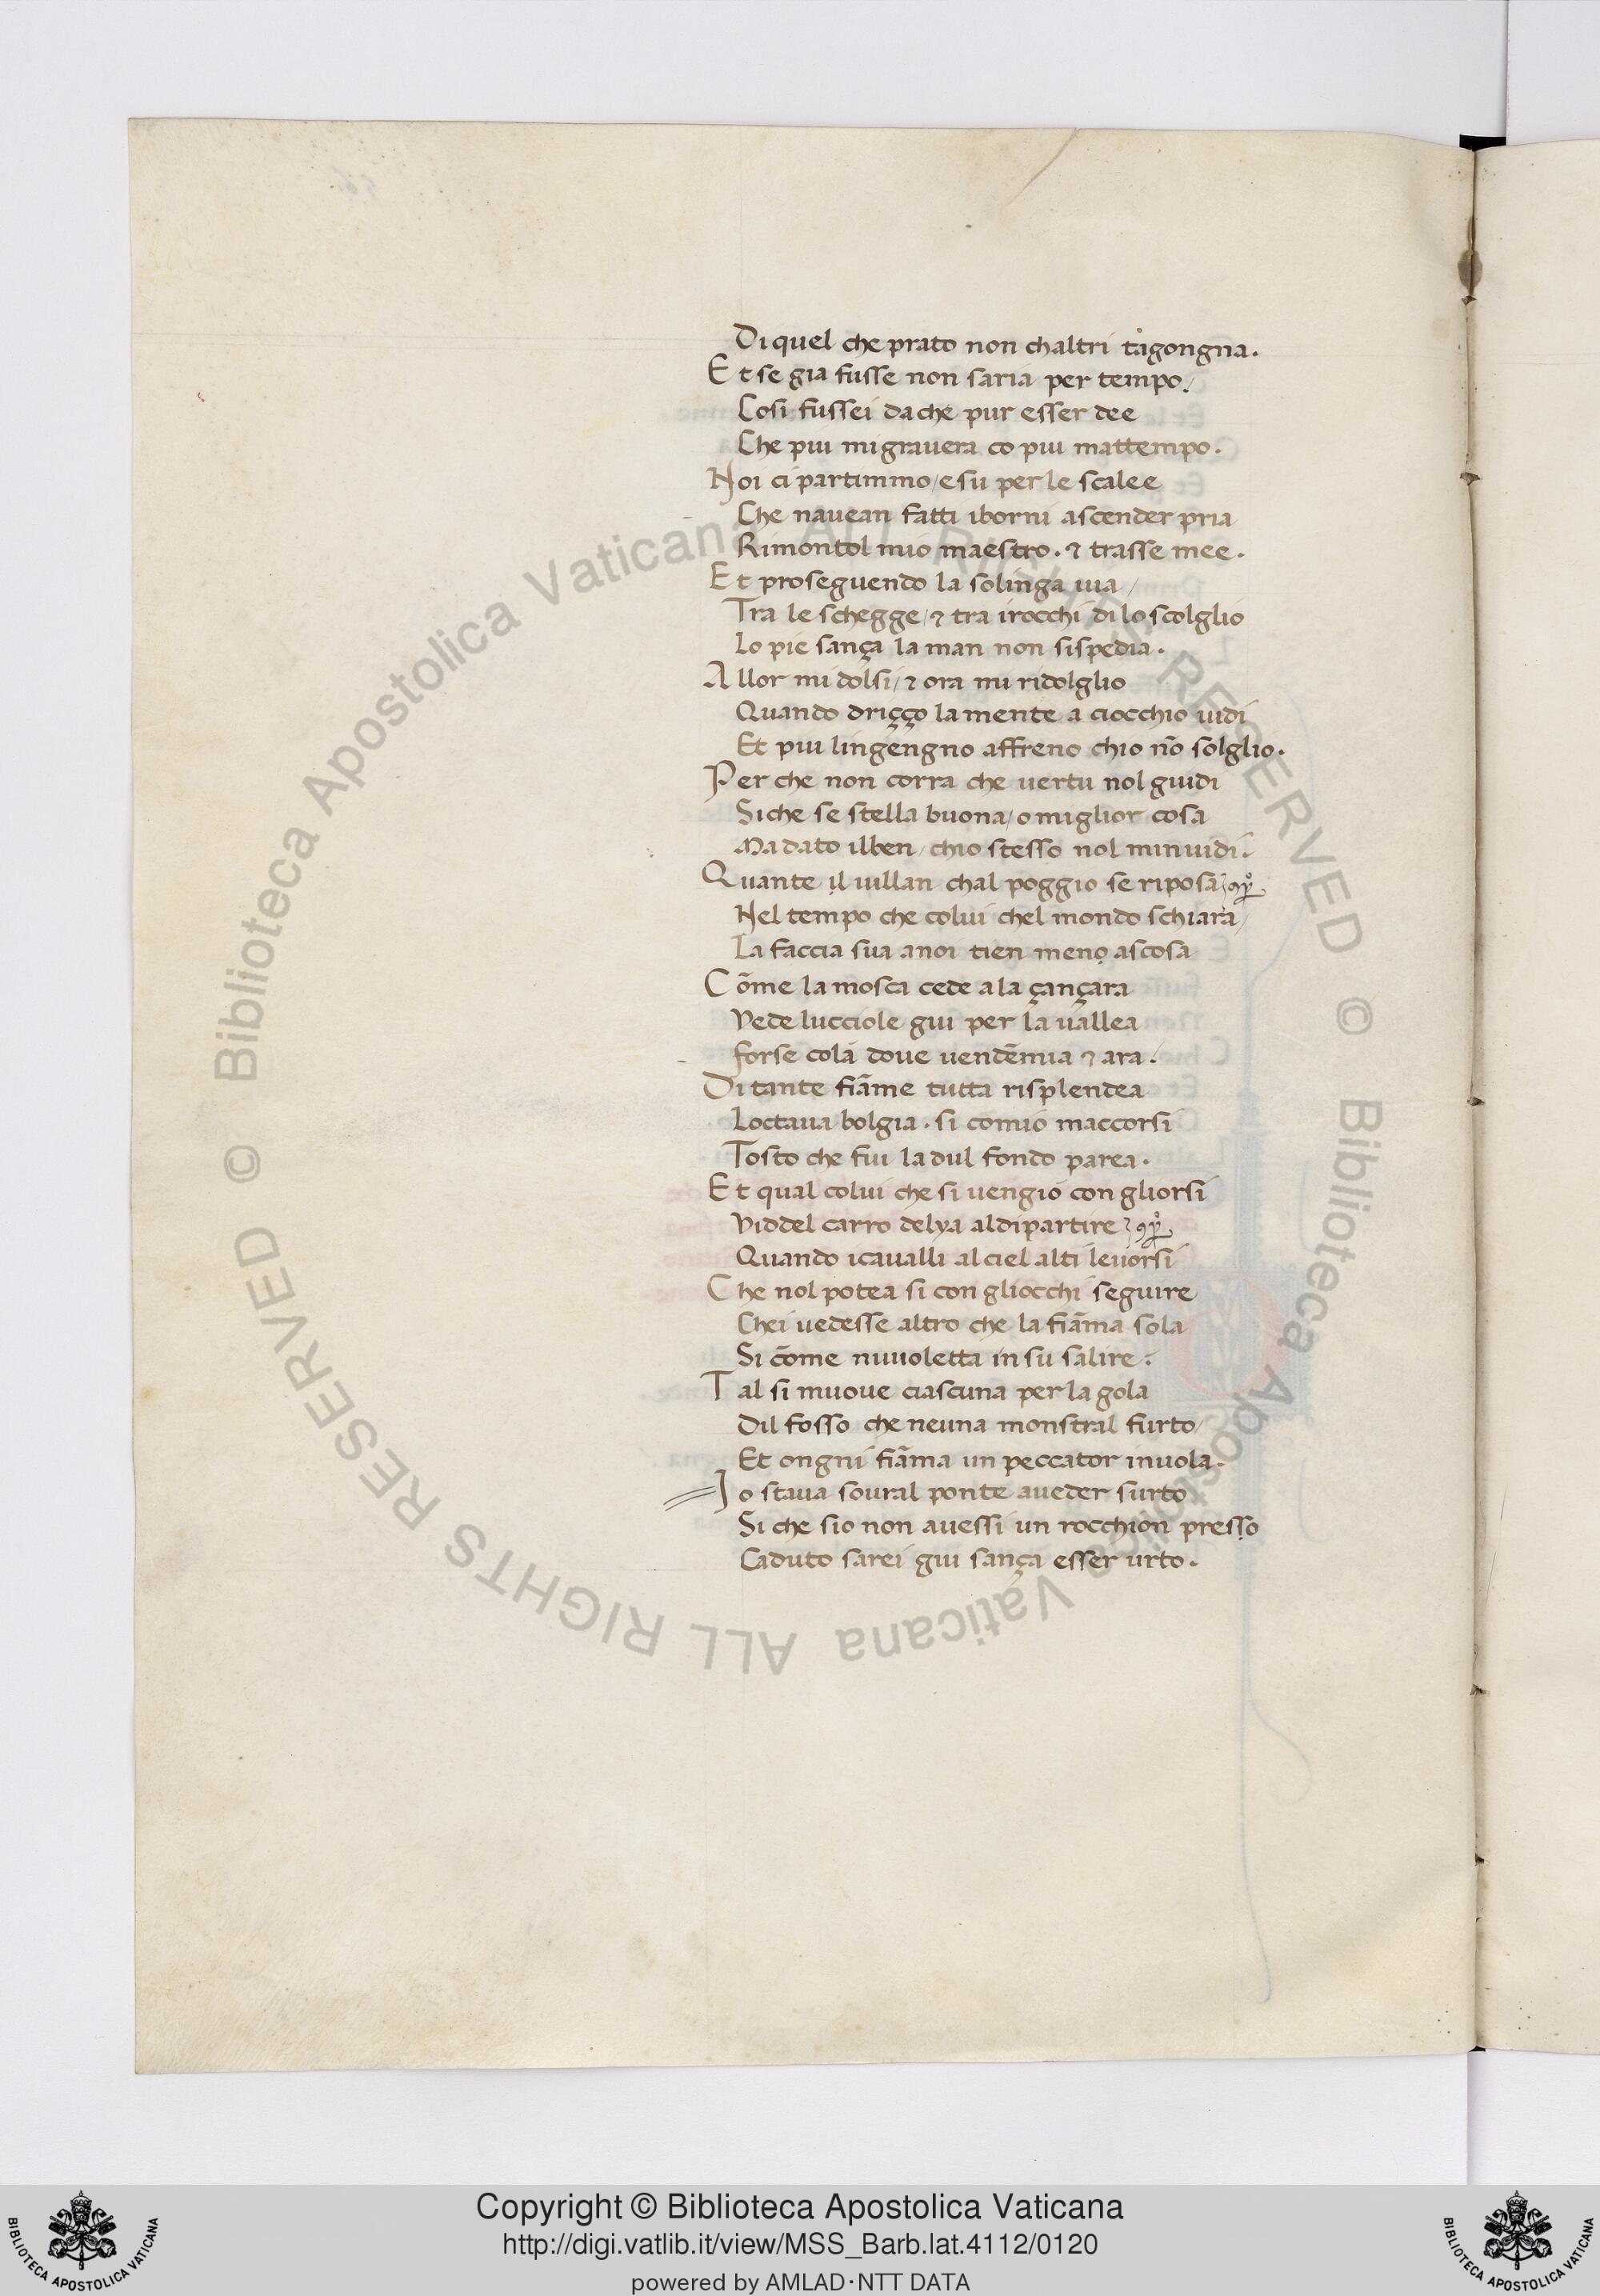 Di quel che prato non chaltri tagongna.
Et se gia fusse non saria per tempo/
Cosi fussei da che pur esser dee
Che piu mi grauera co piu mattempo.
Noi ci partimmo/ e su per le scalee
Che nauean fatti iborni ascender pria
Rimontol mio maestro. ⁊ trasse mee.
Et proseguendo la solinga uia/
Tra le schegge/ ⁊ tra irocchi di lo scolglio
Lo pie sança la man non sispedia.
Allor mi dolsi/ ⁊ ora mi ridolglio
Quando driçço la mente a ciocchio uidi
Et piu lingengno affreno chio nõ solglio.
Per che non corra che uertu nol guidi
Si che se stella buona/ o miglior cosa
Ma dato ilben/ chio stesso nol minuidi.
Quante il uillan chal poggio se riposa
Nel tempo che colui chel mondo schiara/
La faccia sua anoi tien meno ascosa
Cõme la mosca cede ala çançara
Vede lucciole giu per la uallea
forse cola doue uendẽmia ⁊ ara.
Di tante fiãme tutta risplendea
Loctaua bolgia. si comio maccorsi
Tosto che fui la dul fondo parea.
Et qual colui che si uengio con gliorsi
Viddel carro delya aldipartire
Quando icaualli al ciel alti leuorsi
Che nol potea si con gliocchi seguire
Chei uedesse altro che la fiãma sola
Si cõme nuuoletta in su salire.
Tal si muoue ciascuna per la gola
Dil fosso che neuna monstral furto/
Et ongni fiãma un peccator inuola.
Io staua soural ponte aueder surto
Si che sio non auessi un rocchion presso
Caduto sarei giu sança esser urto.
© Biblioteca Apostolica Vaticana ALL RIGHTS RESERVED © Biblioteca Apostolica Vaticana ALL RIGHTS RESERVED
Copyright © Biblioteca Apostolica Vaticana
http://digi.vatlib.it/view/MSS_Barb.lat.4112/0120
powered by AMLAD·NTT DATA
BIBLIOTECA APOSTOLICA VATICANA
BIBLIOTECA APOSTOLICA VATICANA